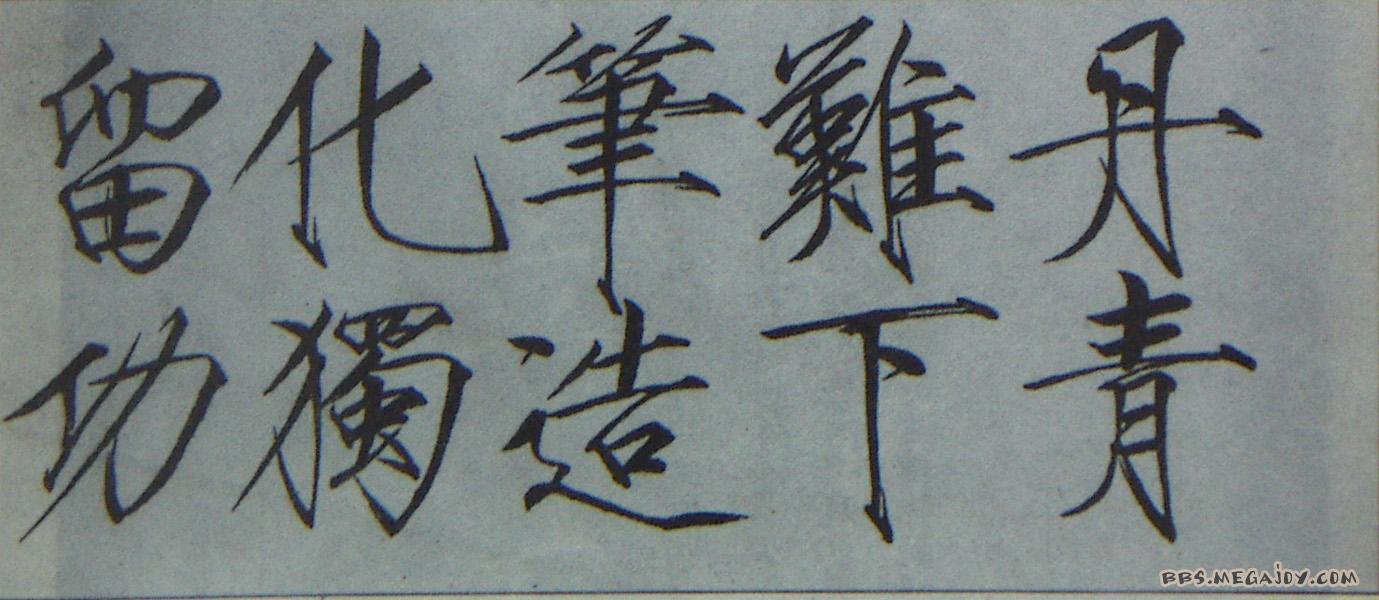 丹青
難下
筆造
化獨
留功
BBS.MEGAJOY.COM